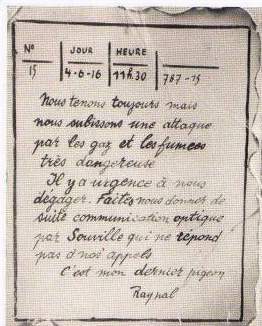 N° JOUR HEURE
15 4-6-16 11h.30 787-15
Nous tenons toujours mais
nous subissons une attaque
par les gaz et les fumées
très dangereuse
Il y a urgence à nous
dégager. Faites nous donner de
suite communication optique
par Souville qui ne répond
pas à nos appels
C'est mon dernier pigeon
Raynal